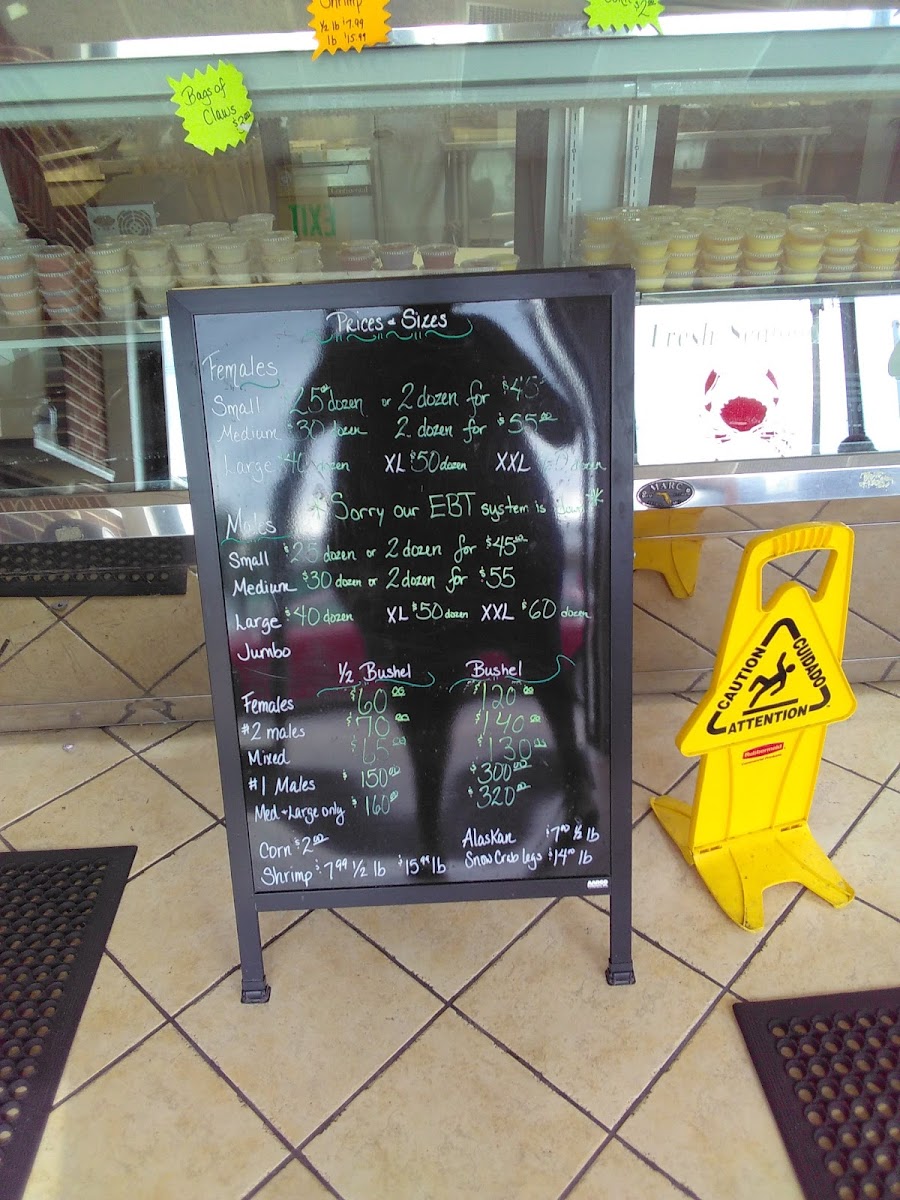 Shrimp
1/2 lb $7.99
lb $15.99
$2.00
Bags of
Claws
$2.00
EXIT
Fresh
MARC
Prices & Sizes
Females
Small $25 dozen or 2 dozen for $45
Medium $30 dozen 2 dozen for $55.00
Large $40 dozen XL $50 dozen XXL dozen
* Sorry our EBT system is down *
Males
Small $25 dozen or 2 dozen for $45.00
Medium $30 dozen or 2 dozen for $55
Large $40 dozen XL $50 dozen XXL $60 dozen
Jumbo
1/2 Bushel Bushel
Females $60.00 $120.00
#2 males $70.00 $140.00
Mixed $65.00 $130.00
#1 Males $150.00 $300.00
Med & Large only $160.00 $320.00
Corn $2.00
Shrimp $7.99 1/2 lb $15.99 lb
Alaskan $7.00 1/2 lb
Snow Crab legs $14.00 lb
CAUTION
CUIDADO
ATTENTION
Rubbermaid